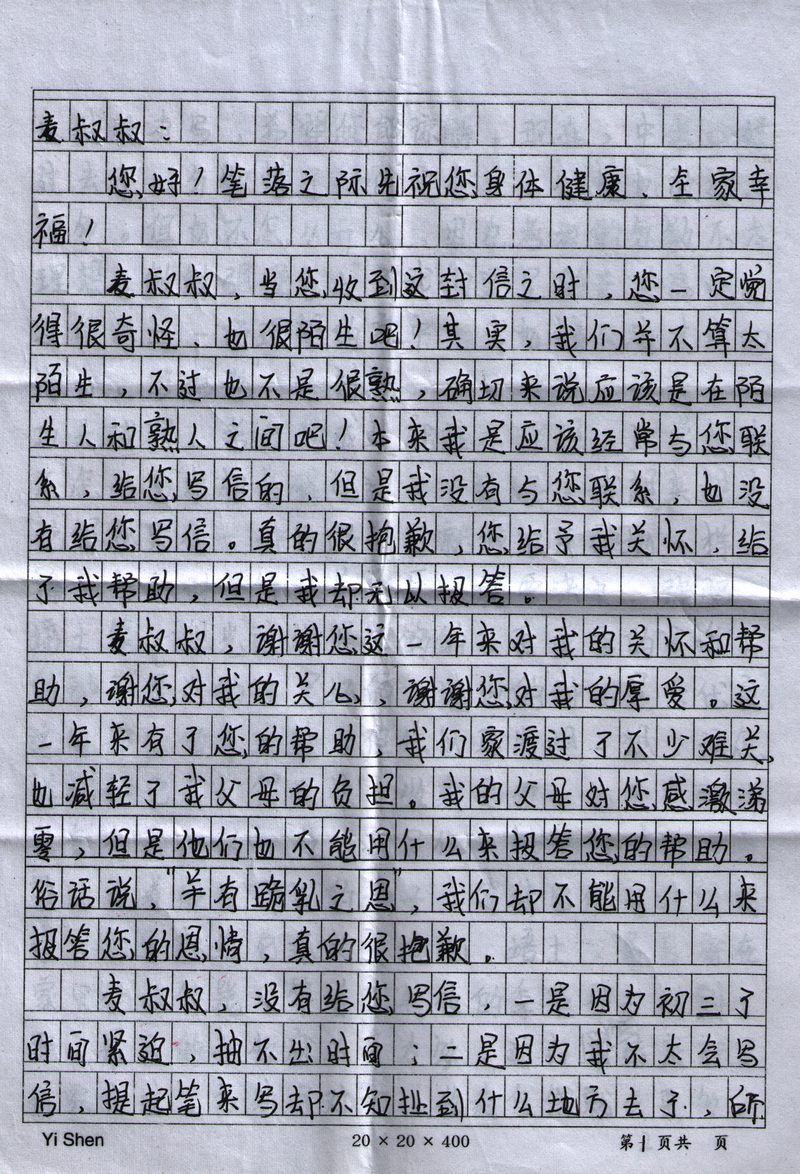 麦叔叔：
您好！笔落之际先祝您身体健康、全家幸
福！
麦叔叔，当您收到这封信之时，您一定觉
得很奇怪、也很陌生吧！其实，我们并不算太
陌生，不过也不是很熟，确切来说应该是在陌
生人和熟人之间吧！本来我是应该经常与您联
系，给您写信的，但是我没有与您联系，也没
有给您写信。真的很抱歉，您给予我关怀，给
了我帮助，但是我却无以报答。
麦叔叔，谢谢您这一年来对我的关怀和帮
助，谢您对我的关心，谢谢您对我的厚爱。这
一年来有了您的帮助，我们家渡过了不少难关，
也减轻了我父母的负担。我的父母对您感激涕
零，但是他们也不能用什么来报答您的帮助。
俗话说，"羊有跪乳之恩"，我们却不能用什么来
报答您的恩情，真的很抱歉。
麦叔叔，没有给您写信，一是因为初三了
时间紧迫，抽不出时间；二是因为我不太会写
信，提起笔来写却不知扯到什么地方去了，所
Yi Shen
20 × 20 × 400
第 1 页共 页